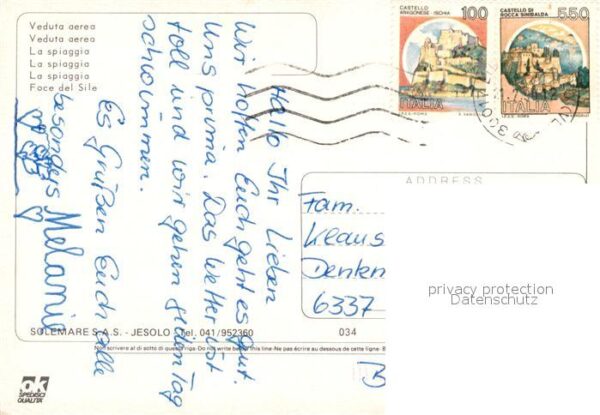 Veduta aerea
Veduta aerea
La spiaggia
La spiaggia
La spiaggia
Foce del Sile
CASTELLO
ARAGONESE - ISCHIA
100
ITALIA
I.P.Z.S. - ROMA
CASTELLO DI
ROCCA SINIBALDA
550
ITALIA
I.P.Z.S. - ROMA
Hallo Ihr Lieben
Wir hoffen Euch geht es gut.
Uns prima. Das Wetter ist
toll und wir gehen jeden Tag
schwimmen.
Es Grüßen Euch alle
besonders Melanie
ADDRESS
Fam.
Klaus
Denken
6337
privacy protection
Datenschutz
SOLEMARE S.A.S. - JESOLO - Tel. 041/952360
034
Non scrivere al di sotto di questa riga - Do not write below this line - Ne pas écrire au dessous de cette ligne -
ok
SPEDISCI
QUALITÀ